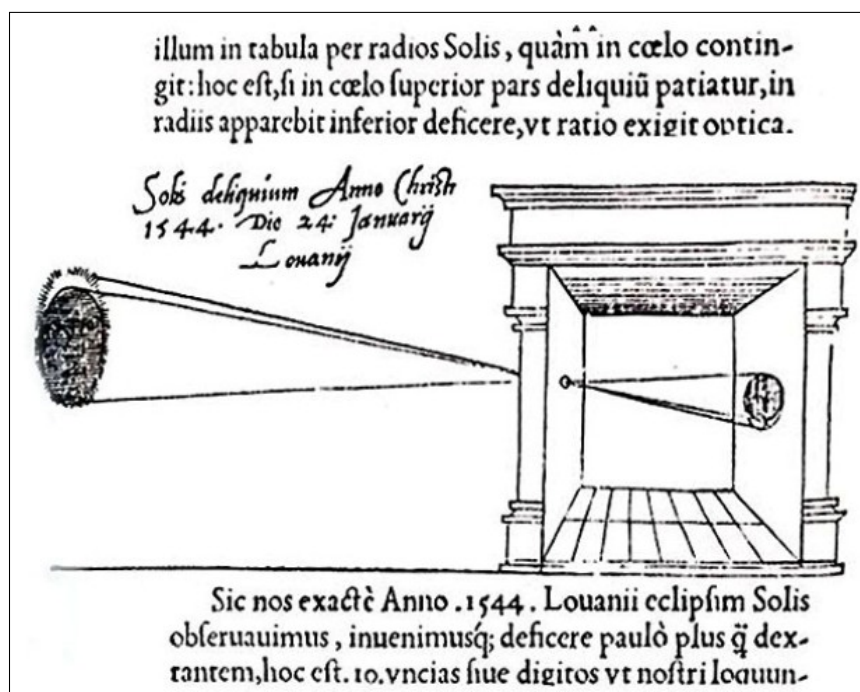 illum in tabula per radios Solis, quàm in cœlo contin-
git: hoc eſt, ſi in cœlo ſuperior pars deliquiũ patiatur, in
radiis apparebit inferior deficere, vt ratio exigit optica.
Solis deliquium Anno Chriſti
1544. Die 24: Januarij
Louanij
Sic nos exactè Anno .1544. Louanii eclipſim Solis
obſeruauimus, inuenimusq́; deficere paulò plus q̃ dex-
tantem, hoc eſt. 10. vncias ſiue digitos vt noſtri loquun-